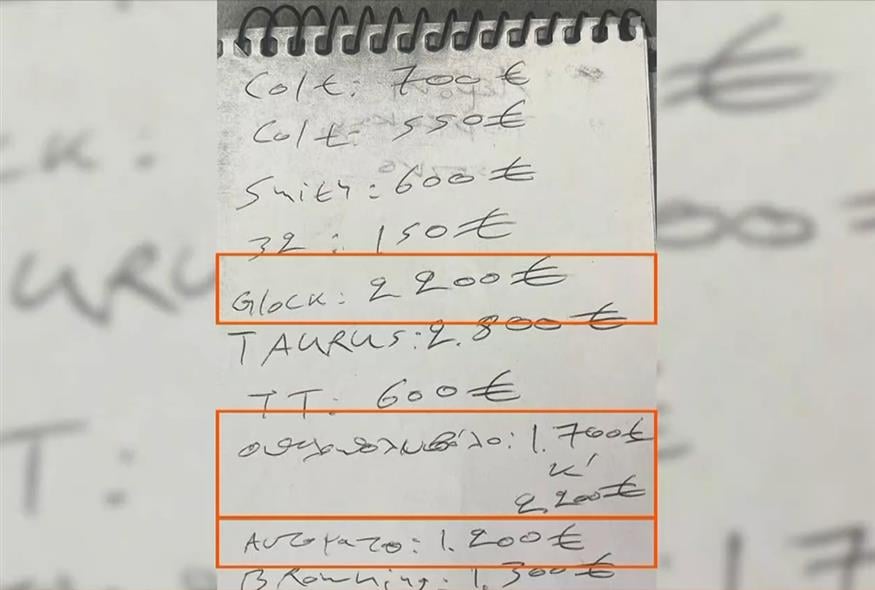 Colt: 700 €
Colt: 550€
Smith: 600 €
32 : 150 €
Glock: 2200€
TAURUS: 2.800 €
TT: 600€
1.700€
κ'
2.200€
Αυτοματο: 1.200€
Browning: 1.300€